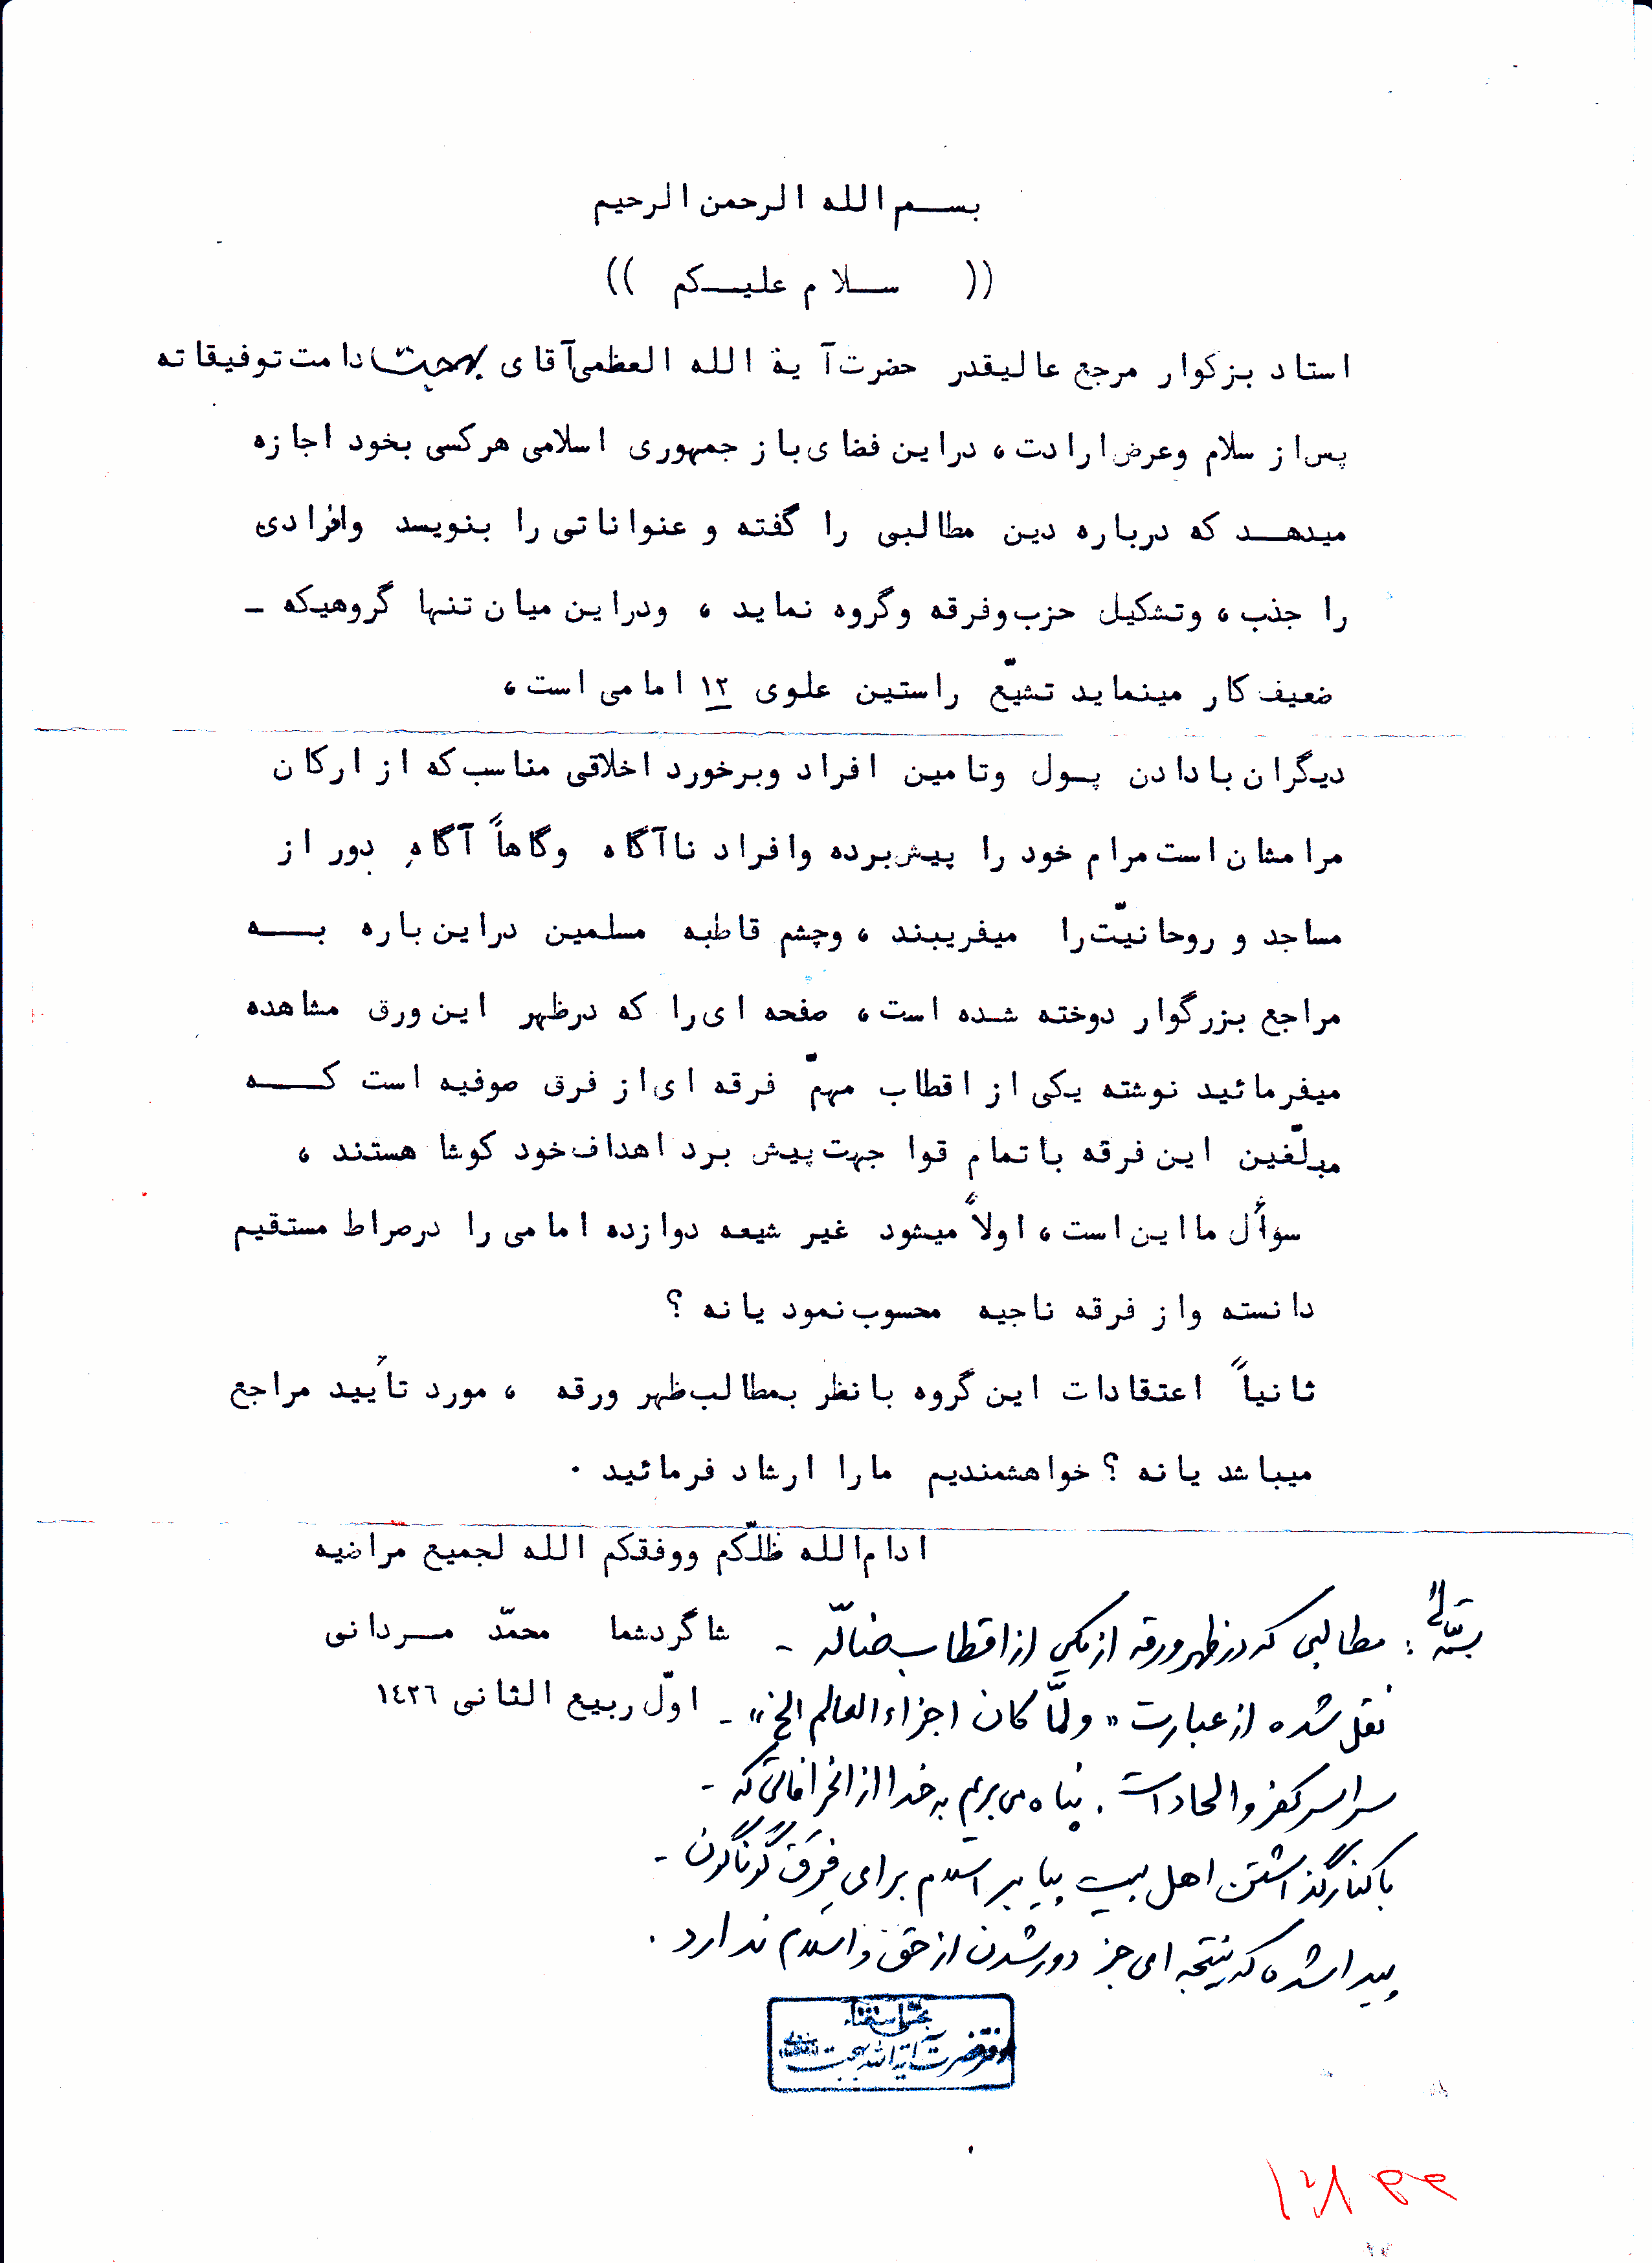 بسم الله الرحمن الرحیم
(( سلام علیکم ))
استاد بزکوار مرجع عالیقدر حضرت آیة الله العظمی آقای بهجت دامت توفیقاته
پس از سلام وعرض ارادت، دراین فضای باز جمهوری اسلامی هرکسی بخود اجازه
میدهد که درباره دین مطالبی را گفته و عنواناتی را بنویسد وافرادی
را جذب، وتشکیل حزب وفرقه وگروه نماید، ودراین میان تنها گروهیکه -
ضعیف کار مینماید تشیّع راستین علوی ۱۲ امامی است،
دیگران با دادن پول وتامین افراد وبرخورد اخلاقی مناسب که از ارکان
مرامشان است مرام خود را پیش برده وافراد ناآگاه وگاهاً آگاه دور از
مساجد و روحانیّت را میفریبند، وچشم قاطبه مسلمین دراین باره به
مراجع بزرگوار دوخته شده است، صفحه ای را که درظهر این ورق مشاهده
میفرمائید نوشته یکی از اقطاب مهمّ فرقه ای از فرق صوفیه است که
مبلّغین این فرقه با تمام قوا جهت پیش برد اهداف خود کوشا هستند،
سوأل ما این است، اولاً میشود غیر شیعه دوازده امامی را درصراط مستقیم
دانسته واز فرقه ناجیه محسوب نمود یا نه ؟
ثانیاً اعتقادات این گروه با نظر بمطالب ظهر ورقه ، مورد تأیید مراجع
میباشد یا نه ؟ خواهشمندیم ما را ارشاد فرمائید .
ادام الله ظلّکم ووفقکم الله لجمیع مراضیه
شاگردشما محمّد مردانی
اوّل ربیع الثانی ۱٤۲٦
بسمه تعالی : مطالبی که در ظهر ورقه از یکی از اقطاب ضالّه -
نقل شده از عبارت «ولمّا کان اجزاء العالم الخ» -
سراسر کفر و الحاد است. پناه می بریم به خدا از انحرافاتی که -
با کنار گذاشتن اهل بیت پیامبر اسلام برای فِرَق گوناگون -
پیدا شده که نتیجه ای جز دور شدن از حق و اسلام ندارد .
بخش استفتاء
دفتر حضرت آیة الله بهجت